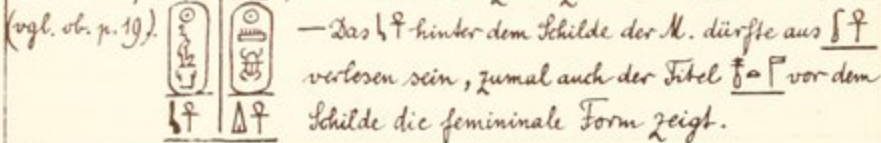 (vgl. ob. p. 19). — Das 𓋹 hinter dem Schilde der M. dürfte aus 𓋴𓋹
verlesen sein, zumal auch der Titel 𓄤𓏏𓊹 vor dem
Schilde die femininale Form zeigt.